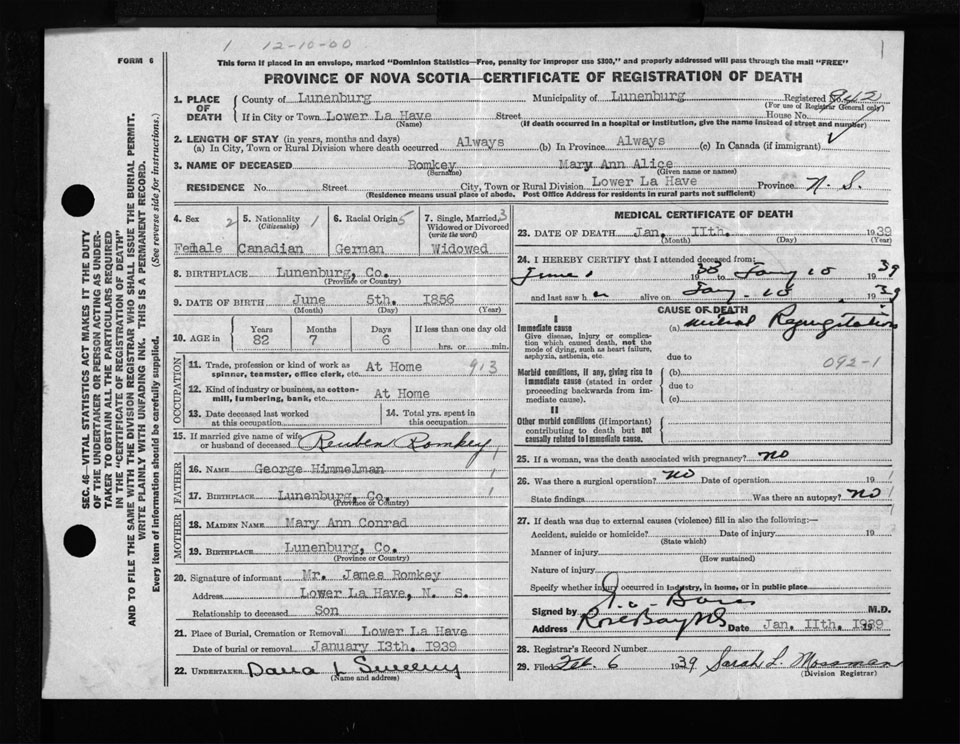 1 12-10-00
FORM 6
This form if placed in an envelope, marked "Dominion Statistics—Free, penalty for improper use $300," and properly addressed will pass through the mail "FREE"
PROVINCE OF NOVA SCOTIA—CERTIFICATE OF REGISTRATION OF DEATH
1. PLACE OF DEATH
County of Lunenburg Municipality of Lunenburg Registered No.
(For use of Registrar General only)
If in City or Town Lower La Have Street House No.
(Name) (If death occurred in a hospital or institution, give the name instead of street and number)
2. LENGTH OF STAY (in years, months and days)
(a) In City, Town or Rural Division where death occurred Always (b) In Province Always (c) In Canada (if immigrant)
3. NAME OF DECEASED Romkey Mary Ann Alice
(Surname) (Given name or names)
RESIDENCE No. Street City, Town or Rural Division Lower La Have Province N. S.
(Residence means usual place of abode. Post Office Address for residents in rural parts not sufficient)
4. Sex 2 5. Nationality 1 6. Racial Origin 5 7. Single, Married, 3
(Citizenship) Widowed or Divorced
(write the word)
Female Canadian German Widowed
8. BIRTHPLACE Lunenburg, Co.
(Province or Country)
9. DATE OF BIRTH June 5th. 1856
(Month) (Day) (Year)
10. AGE in Years Months Days If less than one day old
82 7 6 hrs. or min.
OCCUPATION
11. Trade, profession or kind of work as
spinner, teamster, office clerk, etc. At Home 913
12. Kind of industry or business, as cotton-
mill, lumbering, bank, etc. At Home
13. Date deceased last worked
at this occupation
14. Total yrs. spent in
this occupation
15. If married give name of wife
or husband of deceased Reuben Romkey
FATHER
16. NAME George Himmelman
17. BIRTHPLACE Lunenburg, Co. 1
(Province or Country)
MOTHER
18. MAIDEN NAME Mary Ann Conrad
19. BIRTHPLACE Lunenburg, Co.
(Province or Country)
20. Signature of informant Mr. James Romkey
Address Lower La Have, N. S.
Relationship to deceased Son
21. Place of Burial, Cremation or Removal Lower La Have
Date of burial or removal January 13th. 1939
22. UNDERTAKER Dana L Sweeny
(Name and address)
MEDICAL CERTIFICATE OF DEATH
23. DATE OF DEATH Jan. 11th. 1939
(Month) (Day) (Year)
24. I HEREBY CERTIFY that I attended deceased from:
June 1938 to Jany 10 1939
and last saw her alive on Jany. 10 1939
CAUSE OF DEATH
I
Immediate cause
Give disease, injury or complica-
tion which caused death, not the
mode of dying, such as heart failure,
asphyxia, asthenia, etc.
(a) Mitral Regurgitation
due to
092-1
Morbid conditions, if any, giving rise to
immediate cause (stated in order
proceeding backwards from im-
mediate cause).
(b)
due to
(c)
II
Other morbid conditions (if important)
contributing to death but not
causally related to immediate cause.
25. If a woman, was the death associated with pregnancy? no
26. Was there a surgical operation? no Date of operation 19
State findings Was there an autopsy? no
27. If death was due to external causes (violence) fill in also the following:—
Accident, suicide or homicide? Date of injury 19
(State which)
Manner of injury
(How sustained)
Nature of injury
Specify whether injury occurred in industry, in home, or in public place
Signed by M.D.
Address Rose Bay NS Date Jan. 11th. 1939
28. Registrar's Record Number
29. Filed Feb. 6 1939 Sarah L. Mossman
(Division Registrar)
SEC. 46—VITAL STATISTICS ACT MAKES IT THE DUTY
OF THE UNDERTAKER OR PERSON ACTING AS UNDER-
TAKER TO OBTAIN ALL THE PARTICULARS REQUIRED
IN THE "CERTIFICATE OF REGISTRATION OF DEATH"
AND TO FILE THE SAME WITH THE DIVISION REGISTRAR WHO SHALL ISSUE THE BURIAL PERMIT.
WRITE PLAINLY WITH UNFADING INK. THIS IS A PERMANENT RECORD.
Every item of information should be carefully supplied. (See reverse side for instructions.)